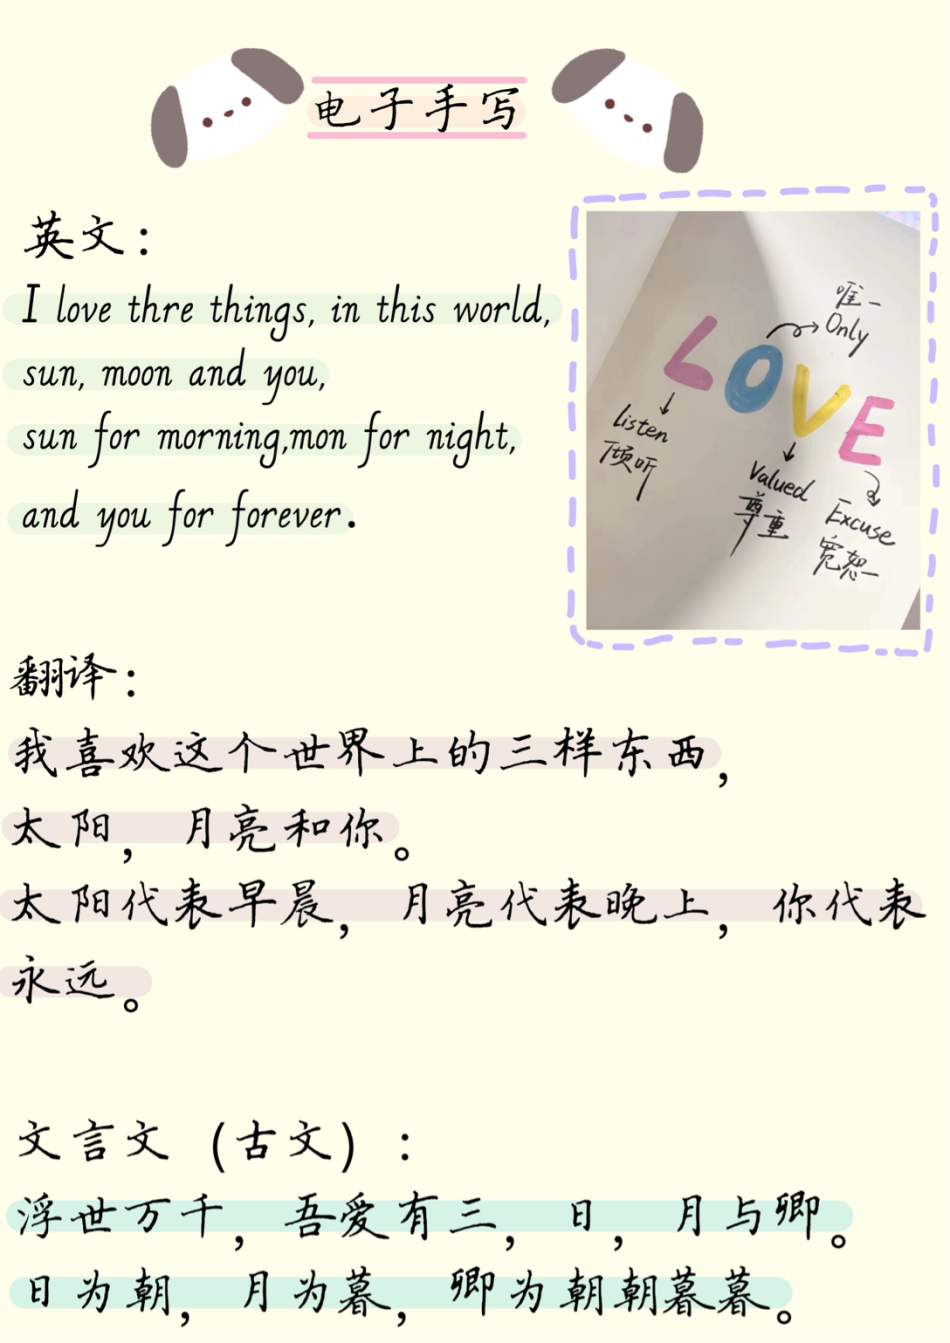 电子手写
英文：
I love thre things, in this world,
sun, moon and you,
sun for morning,mon for night,
and you for forever.
LOVE
唯一
Only
listen
倾听
Valued
尊重
Excuse
宽恕
翻译：
我喜欢这个世界上的三样东西，
太阳，月亮和你。
太阳代表早晨，月亮代表晚上，你代表
永远。
文言文（古文）：
浮世万千，吾爱有三，日，月与卿。
日为朝，月为暮，卿为朝朝暮暮。